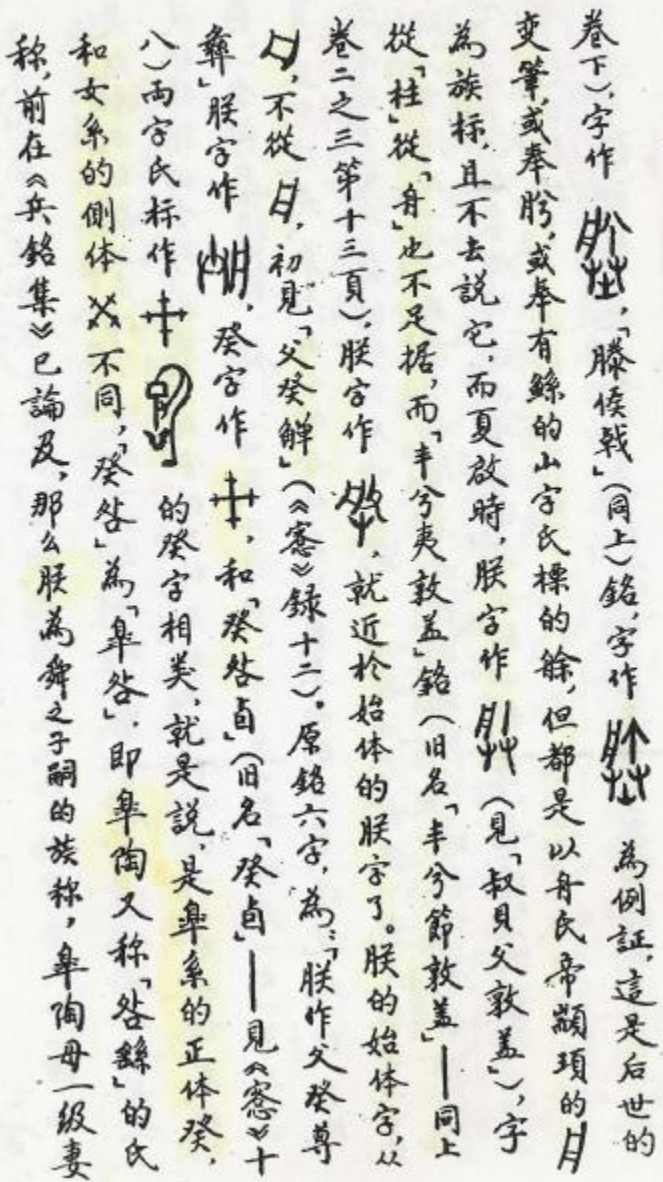 卷下），字作，「滕侯戟」（同上）銘，字作為例証，這是后世的
变筆，或奉肹，或奉有鯀的山字氏標的餘，但都是以舟氏帝顓頊的
為族标，且不去説它，而夏啟時，朕字作（見「叔貝父敦盖」），字
從「柱」從「舟」也不足据，而「丰兮夷敦盖」銘（旧名「丰兮節敦盖」——同上
卷二之三第十三頁），朕字作，就近於始体的朕字了。朕的始体字，从
，不從，初見「父癸觶」（《愙》録十二）。原銘六字，為：「朕作父癸尊
彝」朕字作，癸字作，和「癸咎卣」（旧名「癸卣」——見《愙》十
八）両字氏标作的癸字相类，就是説，是臯系的正体癸，
和女系的側体不同，「癸咎」為「臯咎」，即臯陶又称「咎繇」的氏
称，前在《兵銘集》已論及，那么朕為舜之子嗣的族称，臯陶母一级妻